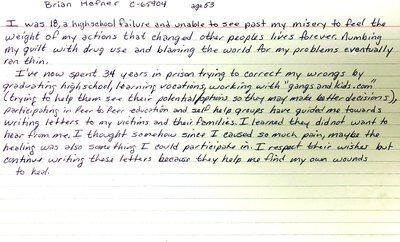 Brian Hefner C-65904 age 53
I was 18, a highschool failure and unable to see past my misery to feel the
weight of my actions that changed other peoples lives forever. Numbing
my guilt with drug use and blaming the world for my problems eventually
ran thin.
I've now spent 34 years in prison trying to correct my wrongs by
graduating high school, learning vocations, working with "gangs and kids.com"
(trying to help them see their potential options so they may make better decisions),
participating in Peer to Peer education and self help groups have guided me towards
writing letters to my victims and their families. I learned they did not want to
hear from me. I thought somehow since I caused so much pain, maybe the
healing was also something I could participate in. I respect their wishes but
continue writing these letters because they help me find my own wounds
to heal.